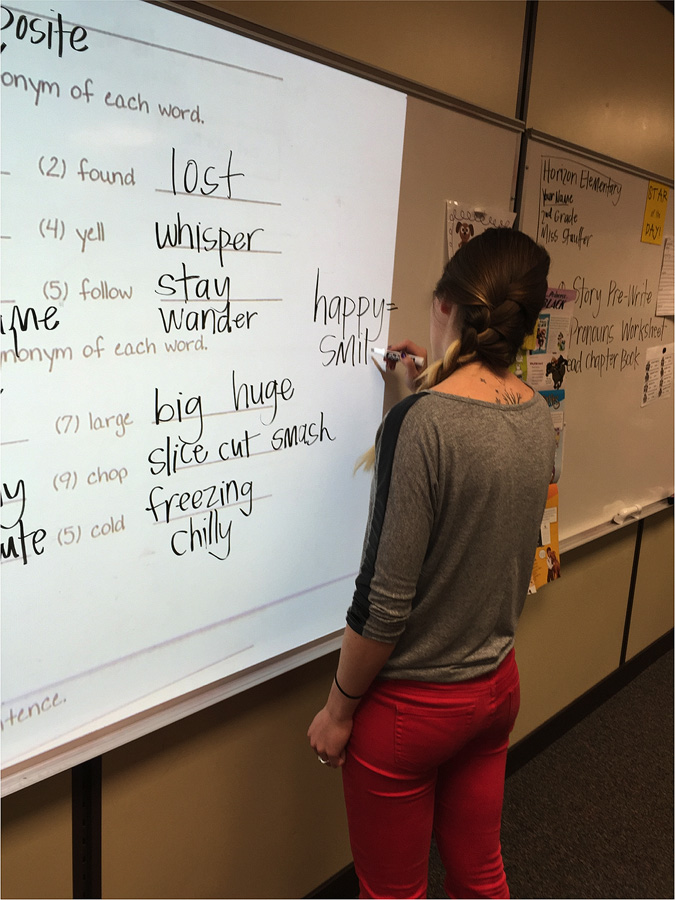 posite
onym of each word.
(2) found lost
(4) yell whisper
(5) follow stay
wander
nonym of each word.
happy=
smil
(7) large big huge
(9) chop slice cut smash
(5) cold freezing
chilly
tence.
Horizon Elementary
Your Name
2nd Grade
Miss Stauffer
STAR
of the
DAY!
Story Pre-Write
Pronouns Worksheet
ead chapter Book